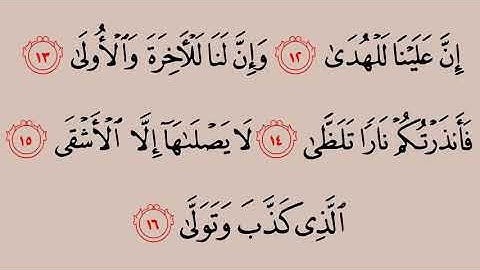 إِنَّ عَلَيْنَا لَلْهُدَىٰ ١٢ وَإِنَّ لَنَا لَلْأَخِرَةَ وَٱلْأُولَىٰ ١٣
فَأَنذَرْتُكُمْ نَارًا تَلَظَّىٰ ١٤ لَا يَصْلَىٰهَآ إِلَّا ٱلْأَشْقَى ١٥
ٱلَّذِى كَذَّبَ وَتَوَلَّىٰ ١٦